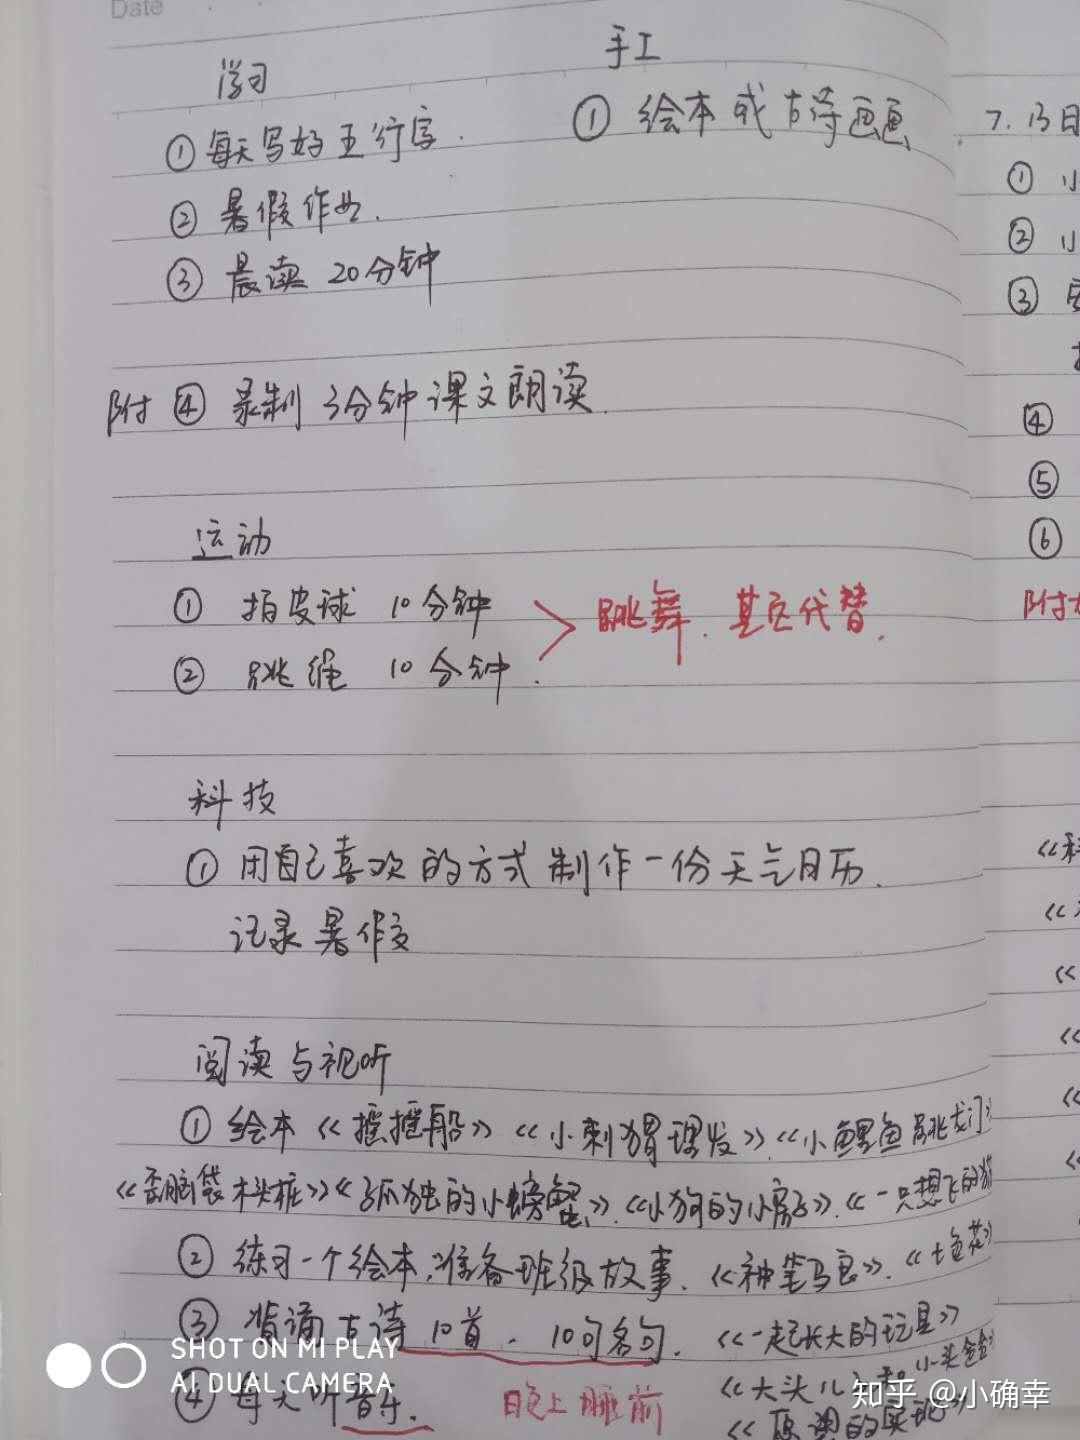 Date
学习
手工
①每天写好五行字.
① 绘本或古诗画画
② 暑假作业.
③ 晨读 20分钟
附 ④ 录制 3分钟 课文朗读.
运动
① 拍皮球 10分钟
② 跳绳 10分钟.
跳舞. 其它代替.
科技
① 用自己喜欢的方式制作一份天气日历.
记录暑假
阅读与视听
① 绘本《摇摇船》《小刺猬理发》.《小鲤鱼跳龙门》
《歪脑袋木头桩》《孤独的小螃蟹》.《小狗的小房子》.《一只想飞的猫
② 练习一个绘本,准备班级故事.《神笔马良》.《七色花》
③ 背诵古诗10首. 10句名句. 《一起长大的玩具》
④ 每天听音乐. 晚上睡前
《大头儿》和小头爸爸
7.13日
① 小
② 小
③
④
⑤
⑥
附
SHOT ON MI PLAY
AI DUAL CAMERA
知乎 @小确幸